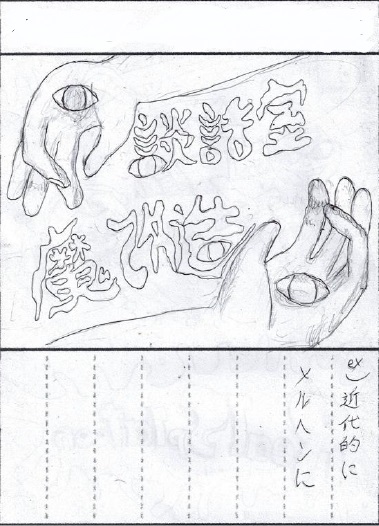 談話室
魔改造
ex) 近代的に
メルヘンに